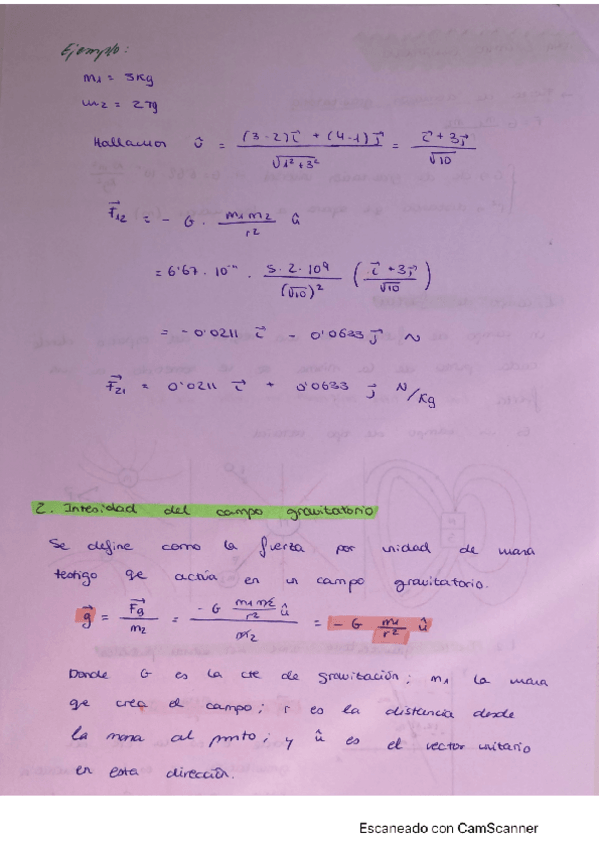 Ejemplo:
m1 = 3Kg
m2 = 2 Tg
Hallamos û = (3-2)i⃗ + (4-1)j⃗ / √1²+3² = i⃗ + 3j⃗ / √10
F⃗12 = - G · m1m2 / r² û
= 6'67 · 10⁻¹¹ · 5 · 2 · 10⁹ / (√10)² ( i⃗ + 3j⃗ / √10 )
= - 0'0211 i⃗ - 0'0633 j⃗ N
F⃗21 = 0'0211 i⃗ + 0'0633 j⃗ N/Kg
2. Intesidad del campo gravitatorio
Se define como la fuerza por unidad de masa
testigo qe actúa en un campo gravitatorio.
g⃗ = F⃗g / m2 = - G m1m2 / r² û / m2 = - G m1 / r² û
Donde G es la cte de gravitación; m1 la masa
qe crea el campo; r es la distancia desde
la masa al punto; y û es el vector unitario
en esta dirección.
Escaneado con CamScanner